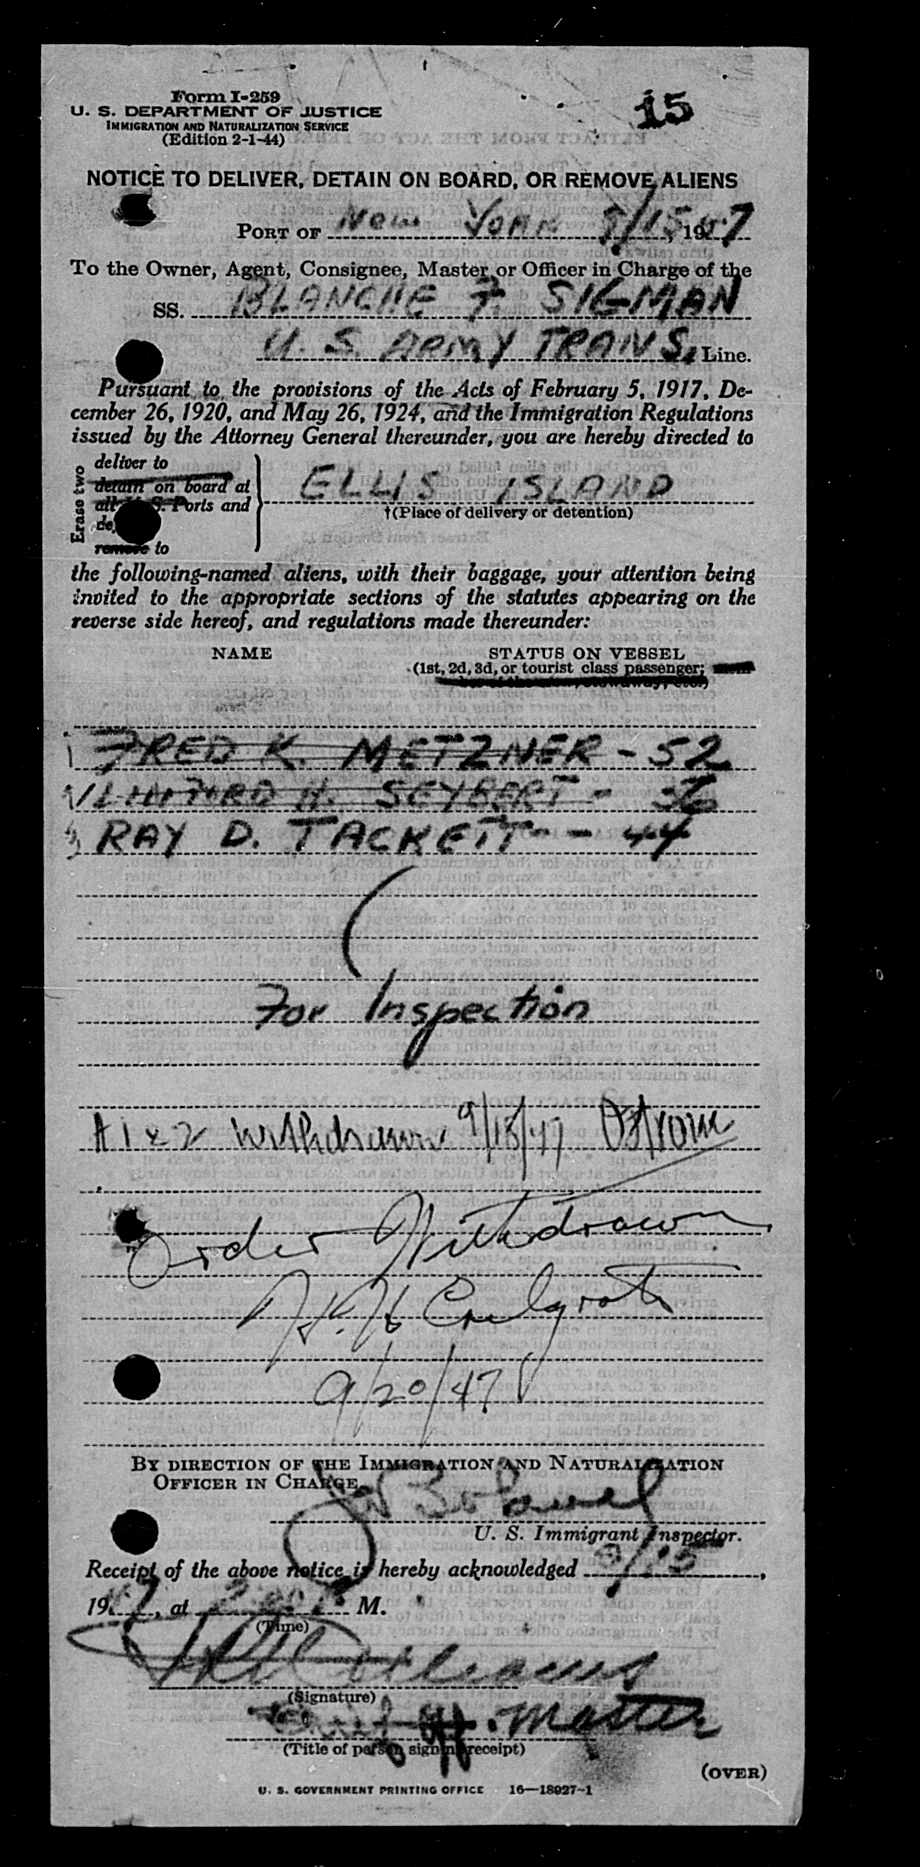 Form I-259
15
U. S. DEPARTMENT OF JUSTICE
IMMIGRATION AND NATURALIZATION SERVICE
(Edition 2-1-44)
NOTICE TO DELIVER, DETAIN ON BOARD, OR REMOVE ALIENS
PORT OF New York 9/15, 1947
To the Owner, Agent, Consignee, Master or Officer in Charge of the
SS. BLANCHE F. SIGMAN
U. S. ARMY TRANS. Line.
Pursuant to the provisions of the Acts of February 5, 1917, De-
cember 26, 1920, and May 26, 1924, and the Immigration Regulations
issued by the Attorney General thereunder, you are hereby directed to
Erase two
deliver to
detain on board at
all U. S. Ports and
remove to
ELLIS ISLAND
†(Place of delivery or detention)
the following-named aliens, with their baggage, your attention being
invited to the appropriate sections of the statutes appearing on the
reverse side hereof, and regulations made thereunder:
NAME STATUS ON VESSEL
(1st, 2d, 3d, or tourist class passenger;
1 FRED K. METZNER - 52
H. SEYBERT - 36
3 RAY D. TACKETT - - 44
For Inspection
1 & 2 withdrawn 9/18/47 Ostrom
Order Withdrawn
9/20/47
BY DIRECTION OF THE IMMIGRATION AND NATURALIZATION
OFFICER IN CHARGE
U. S. Immigrant Inspector.
Receipt of the above notice is hereby acknowledged 9/15,
1947, at 2 P M.
(Time)
(Signature)
Master
(Title of person signing receipt)
(OVER)
U. S. GOVERNMENT PRINTING OFFICE 16—18927-1